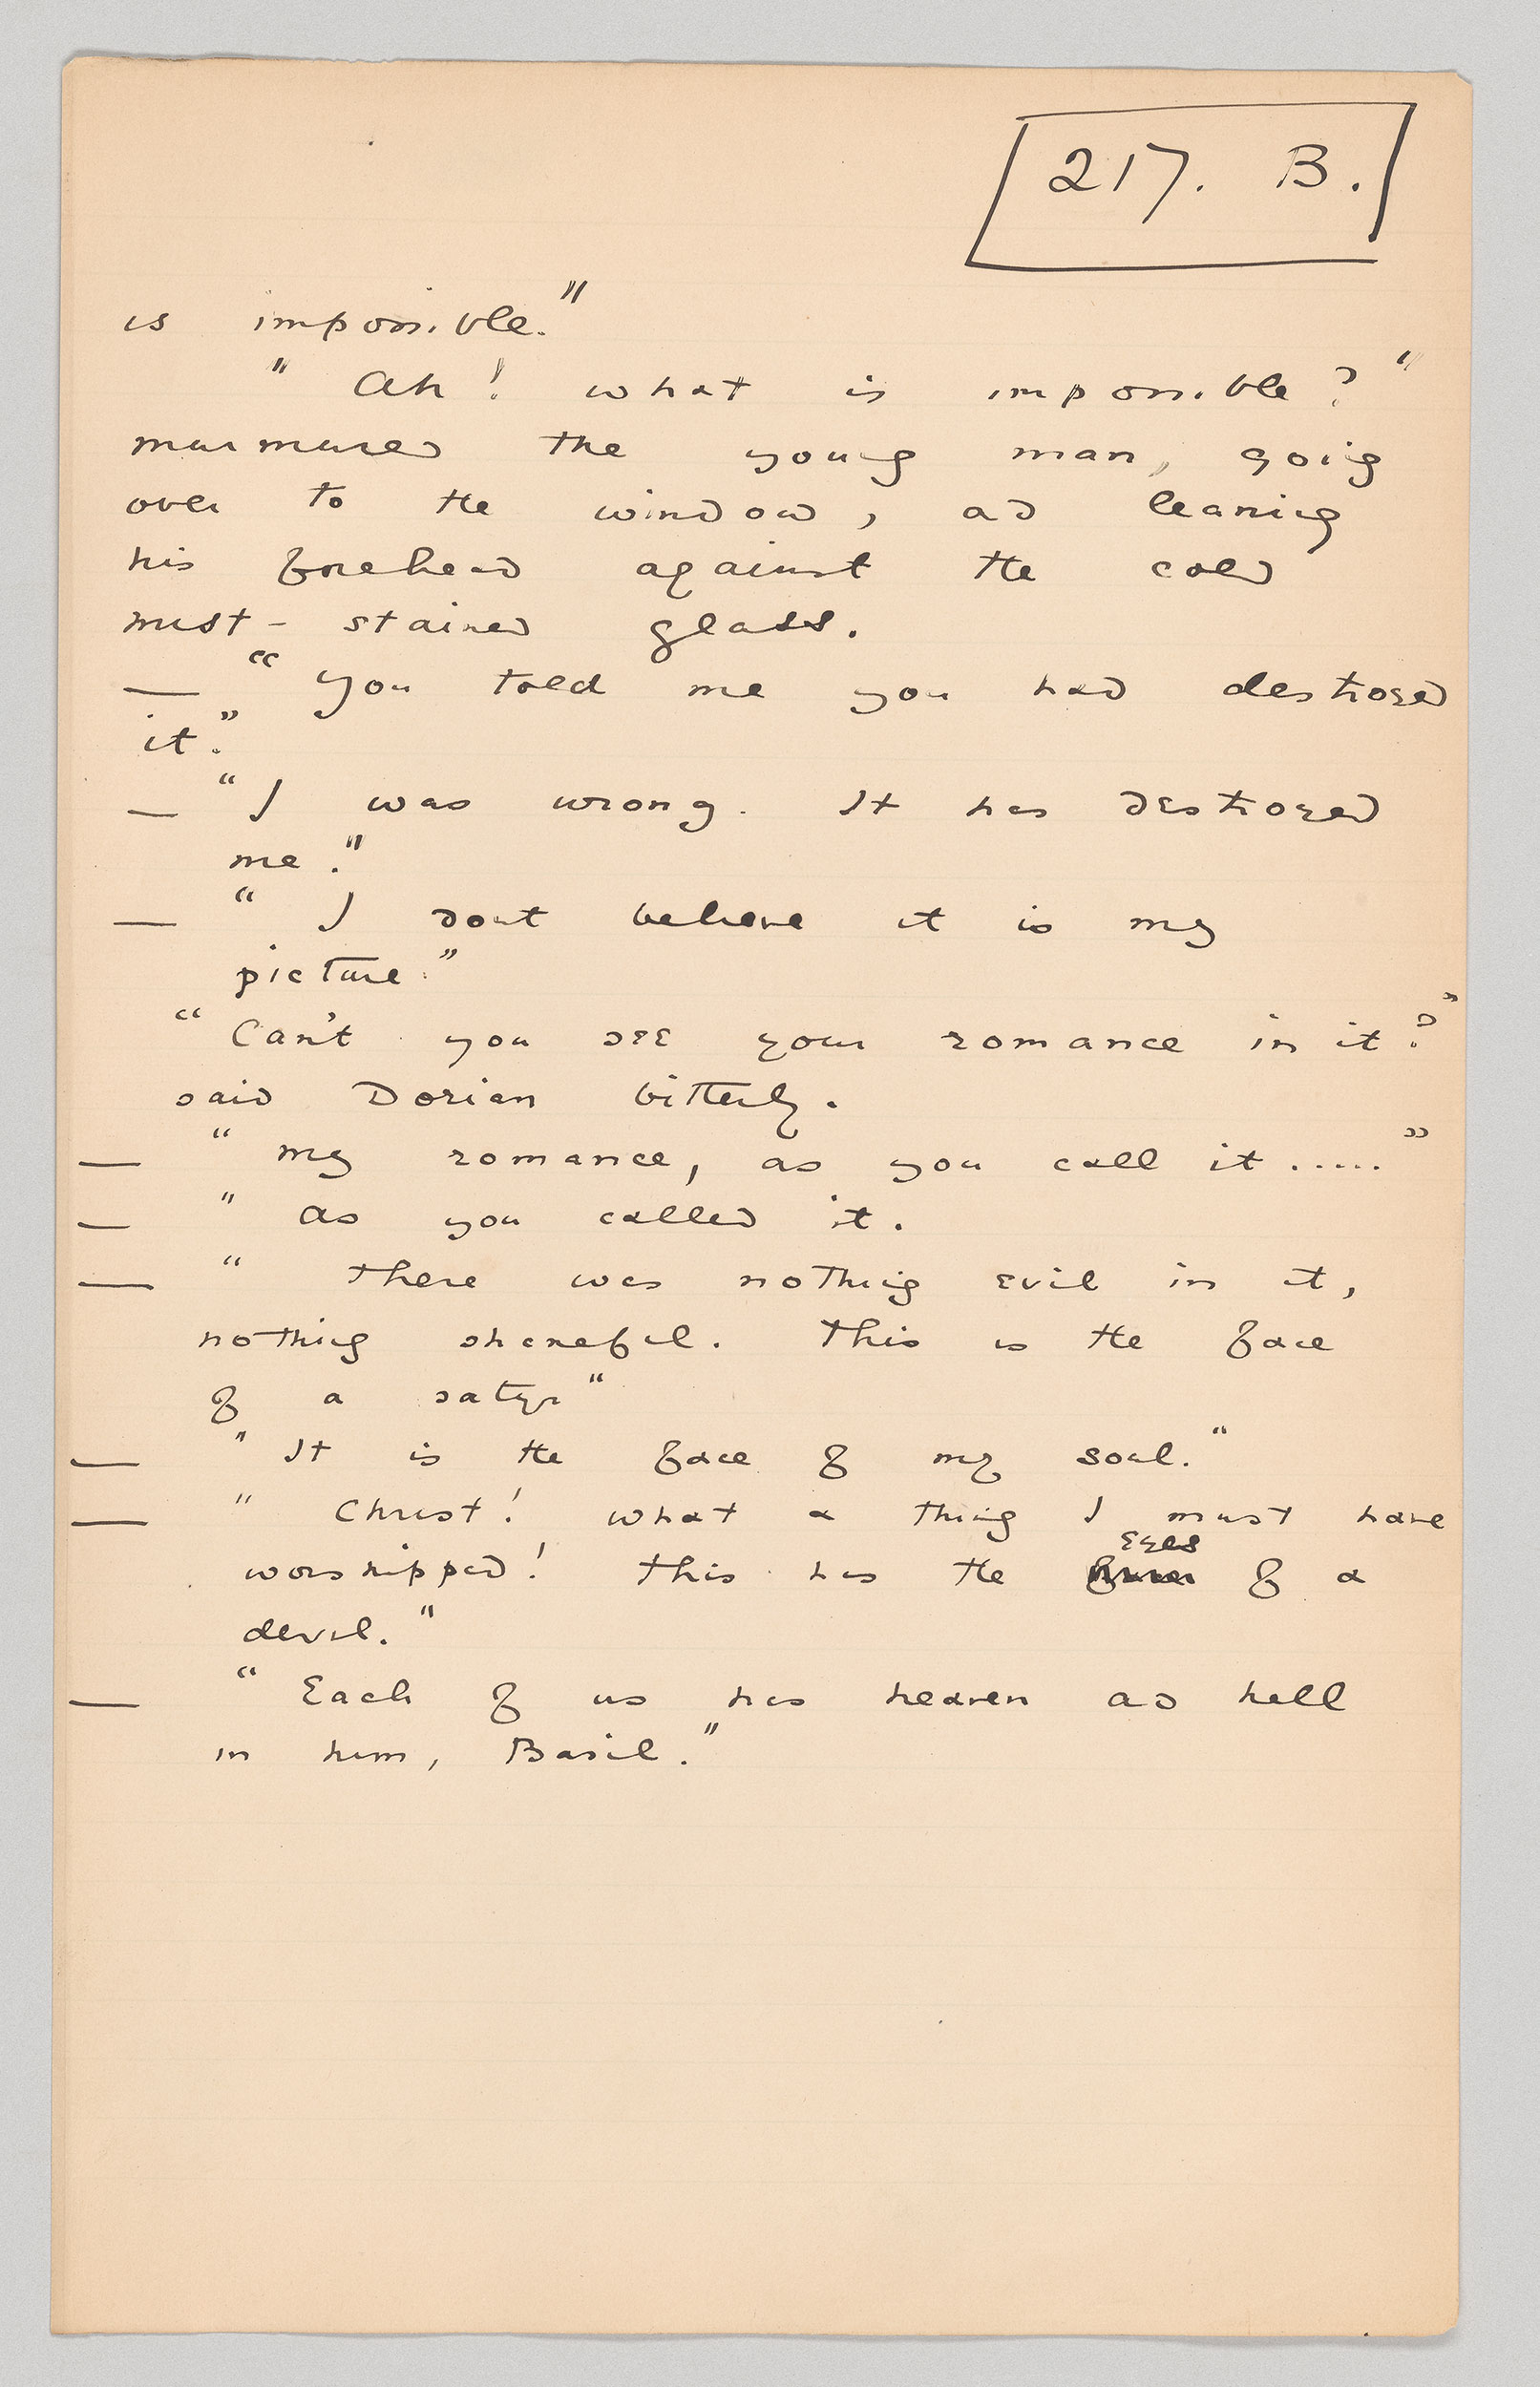 217. B.
is impossible."
" Ah! what is impossible?"
murmured the young man, going
over to the window, and leaning
his forehead against the cold
mist-stained glass.
— "You told me you had destroyed
it."
— "I was wrong. It has destroyed
me."
— "I dont believe it is my
picture."
"Can't you see your romance in it?"
said Dorian bitterly.
— "my romance, as you call it....."
— "as you called it.
— "there was nothing evil in it,
nothing shameful. This is the face
of a satyr"
— "It is the face of my soul."
— "Christ! what a thing I must have
eyes
worshipped! This has the of a
devil."
— "Each of us has heaven and hell
in him, Basil."